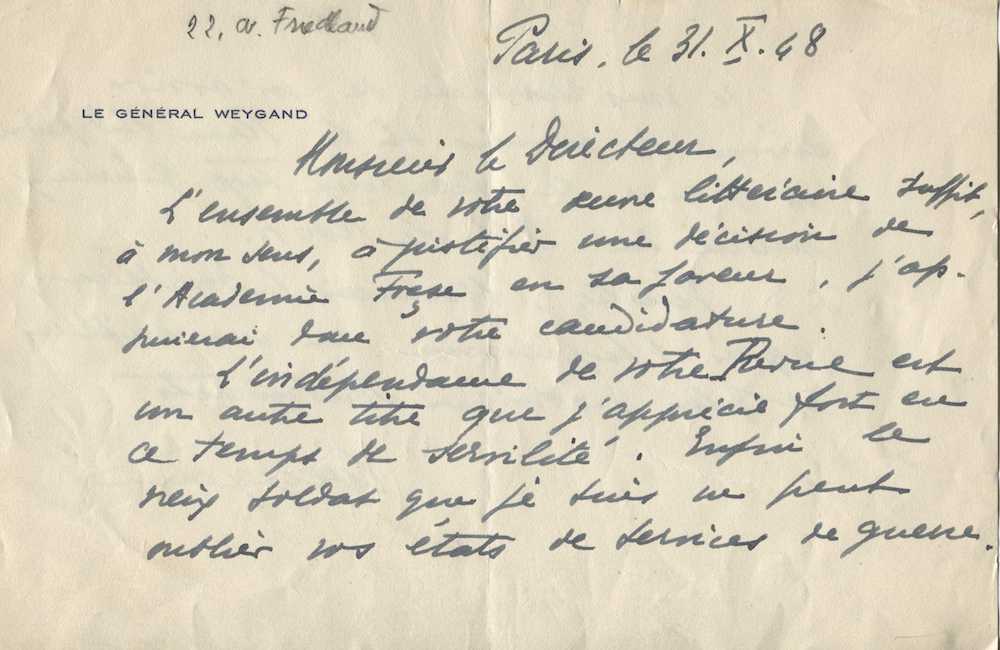 22, av. Friedland
Paris, le 31.X.48
LE GÉNÉRAL WEYGAND
Monsieur le Directeur,
L'ensemble de votre œuvre littéraire suffit,
à mon sens, à justifier une décision de
l'Académie Frçse en sa faveur, j'ap-
puierai donc votre candidature.
L'indépendance de votre Revue est
un autre titre que j'apprécie fort en
ce temps de servilité. Enfin le
vieux soldat que je suis ne peut
oublier vos états de services de guerre.